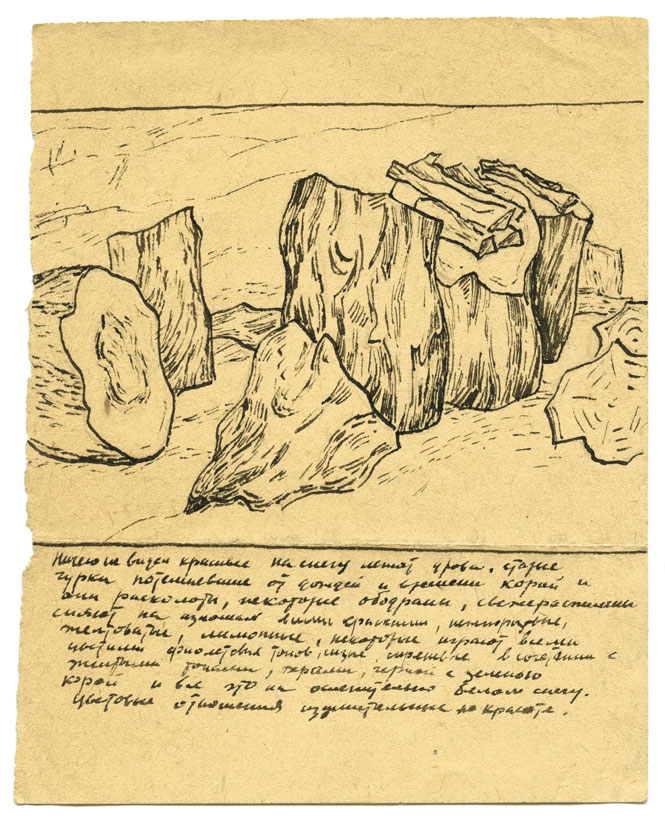 Ничего не видел красивее на снегу лежат дрова. старые
чурки потемневшие от дождей и времени корой и
они расколоты, некоторые ободраны, свежераспилены
сияют на изломах всеми красками,
желтоватые, лимонные, некоторые играют всеми
цветами фиолетовых тонов, сизые, сиреневые в сочетании с
желтыми тонами, серыми, черной с зеленого
корой и все это на ослепительно белом снегу.
Цветовые отношения изумительные по красоте.